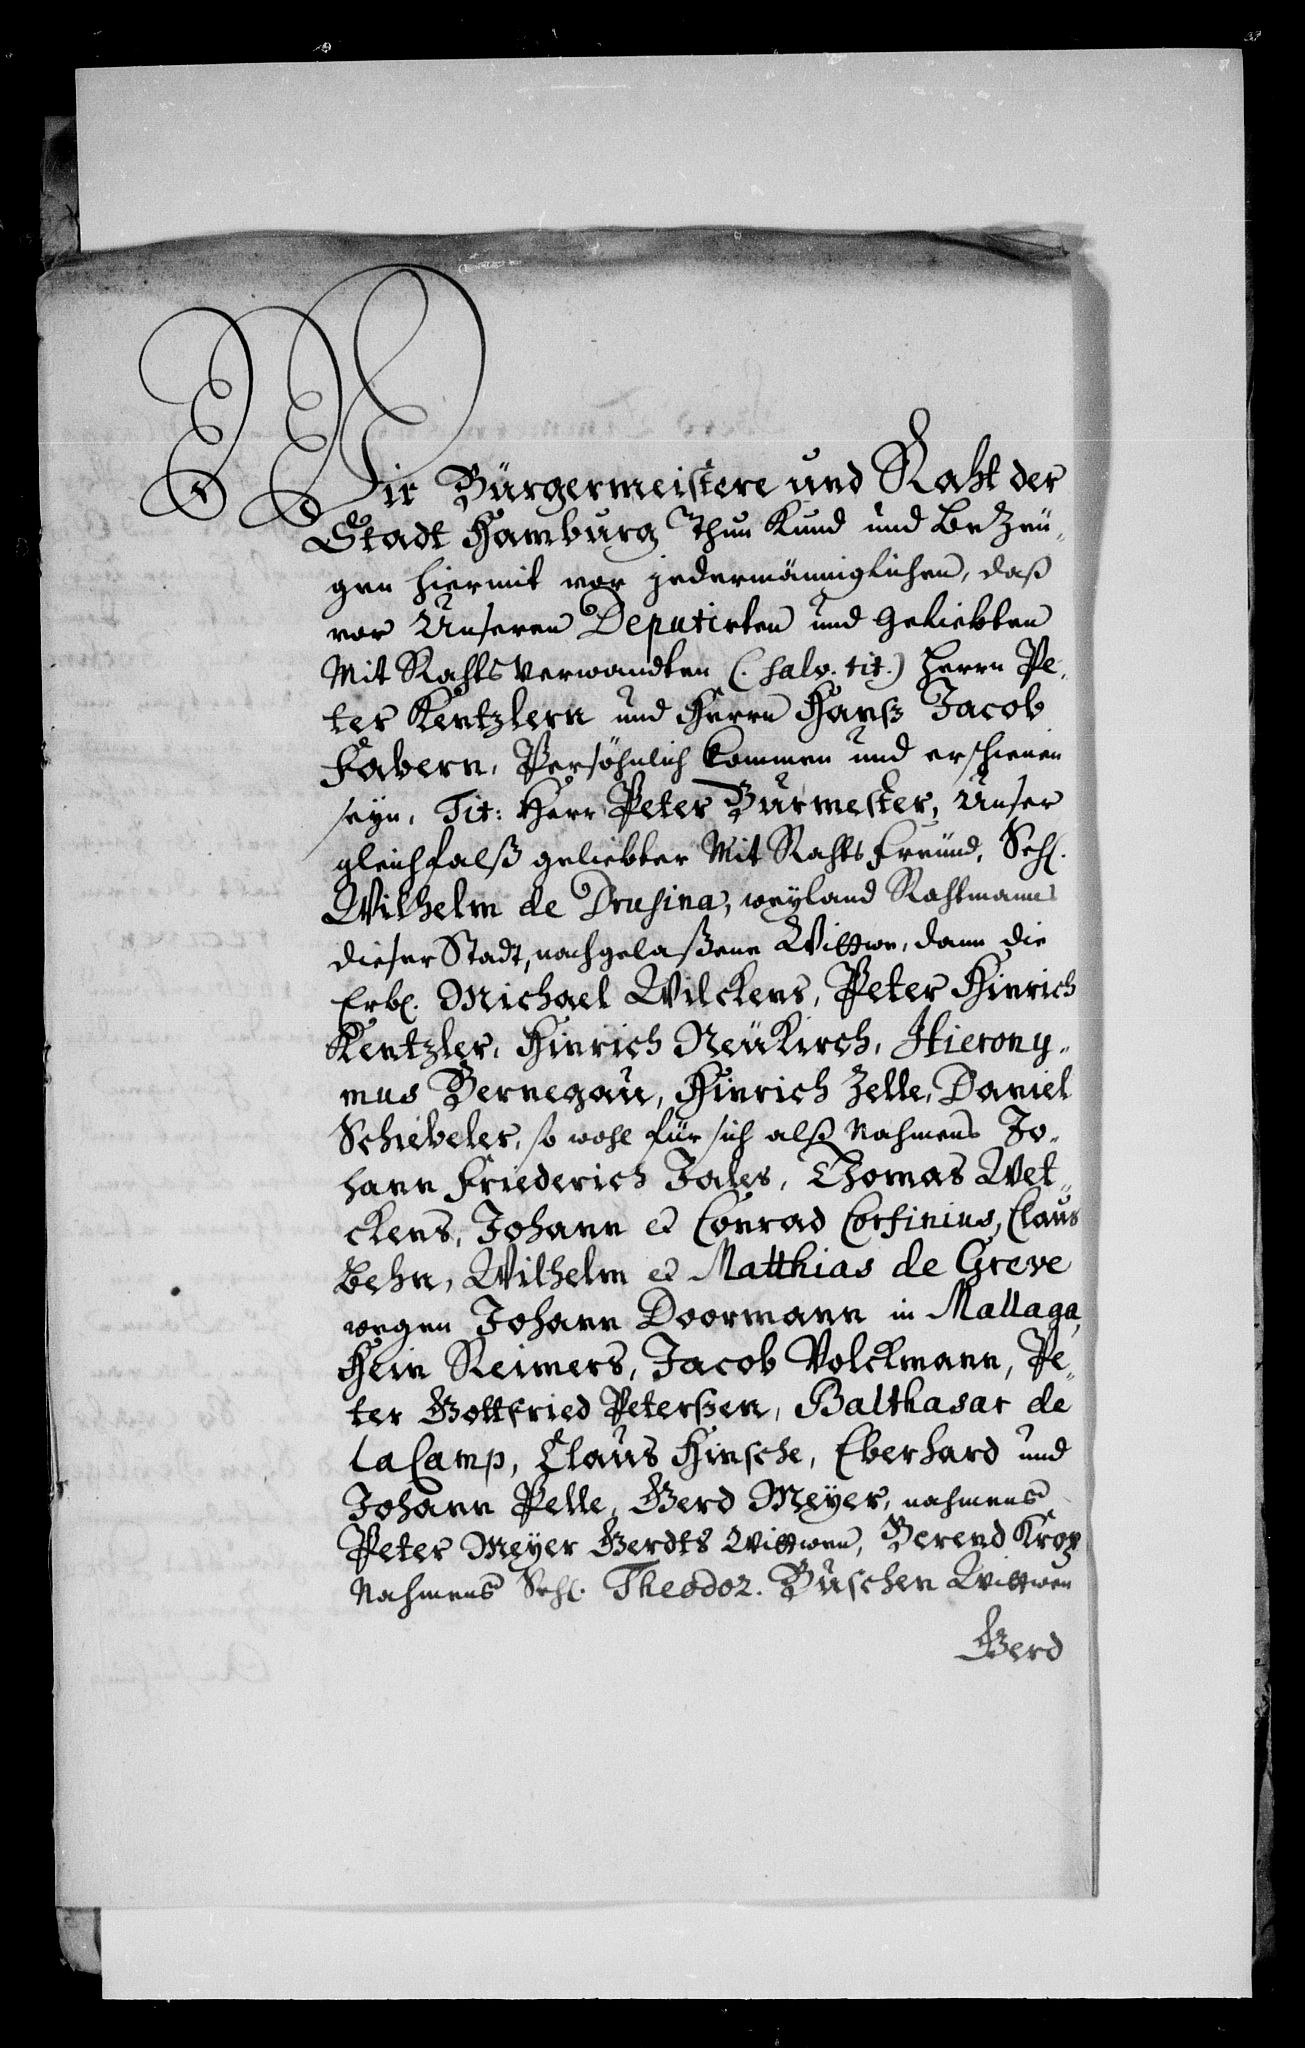 Wir Bürgermeistere und Raht der
Stadt Hamburg Thun Kund und Be Zeu„
gen hiermit vor jedermänniglichen, daß
vor Unseren Deputirten und Geliebten
Mit Rahts Verwandten (. salv. tit.) Herrn Pe„
ter Kentzlern und Herrn Hanß Jacob
Fabern, Persöhnlich kommen und erschienen
seyn, Tit: Herr Peter Burmester, Unser
gleichfalß geliebter Mit Rahts Freund, Sehl.
Wilhelm de Drusina, weyland Rahtmanns
dieser Stadt, nachgelaßene Wittwe, dann die
Erb. Michael Wilckens, Peter Hinrich
Kentzler, Hinrich Neukirch, Hierony„
mus Bernegau, Hinrich Zelle, Daniel
Schiebeler, so wohl für sich alß Nahmens Jo„
hann Friederich Jales, Thomas Wet„
ckens, Johann et Conrad Corfinius, Claus
Behn, Wilhelm et Matthias de Greve
wegen Johann Doormann in Mallaga,
Hein Reimers, Jacob Volckmann, Pe„
ter Gottfried Peterßen, Balthasar de
la Camp, Claus Hinsche, Eberhard und
Johann Pelle, Gerd Meyer, nahmens
Peter Meyer Gerdts Wittwen, Berend Krop
Nahmens Sehl. Theodor. Büschen Wittwen
Gerd